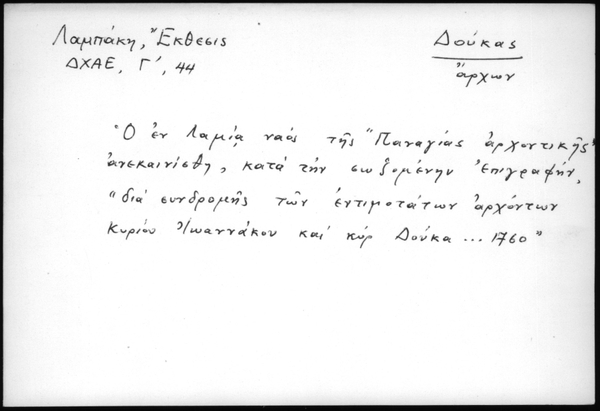 Λαμπάκη, Ἔκθεσις
ΔΧΑΕ, Γ', 44
Δούκας
ἄρχων
Ὁ ἐν Λαμίᾳ ναός τῆς "Παναγίας ἀρχοντικῆς"
ἀνεκαινίσθη, κατά τήν σωζομένην ἐπιγραφήν,
"διά συνδρομῆς τῶν ἐντιμοτάτων ἀρχόντων
Κυρίου Ἰωαννάκου καί κύρ Δούκα ... 1760"